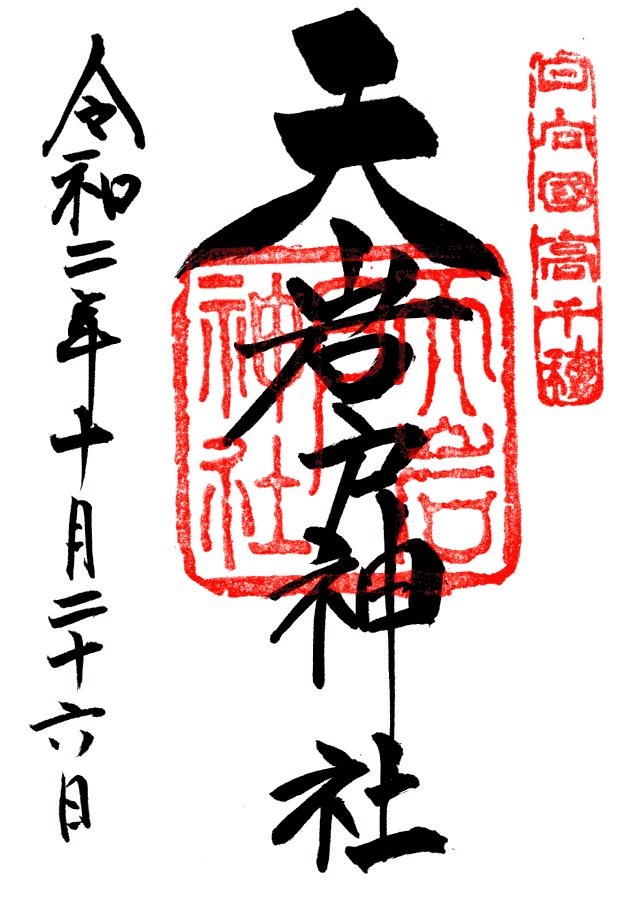 日向國高千穂
天岩戸神社
天岩
戸
神社
令和二年十月二十六日